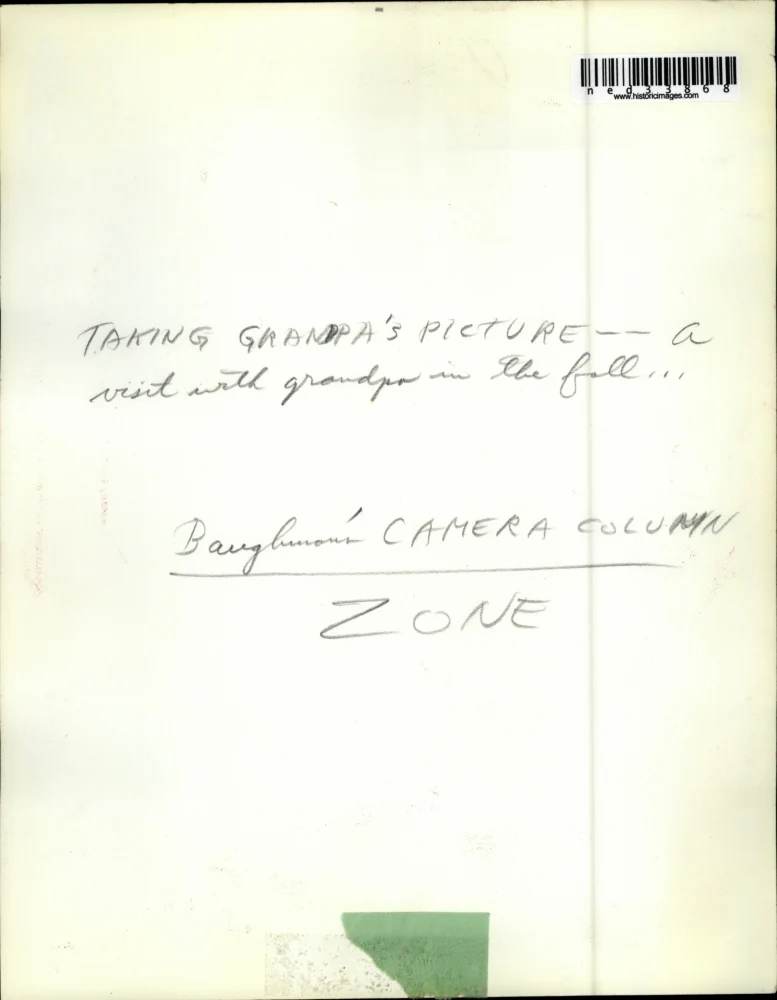 ned33868
www.historicimages.com
TAKING GRANDPA'S PICTURE -- a
visit with grandpa in the fall...
Baughman's CAMERA COLUMN
ZONE